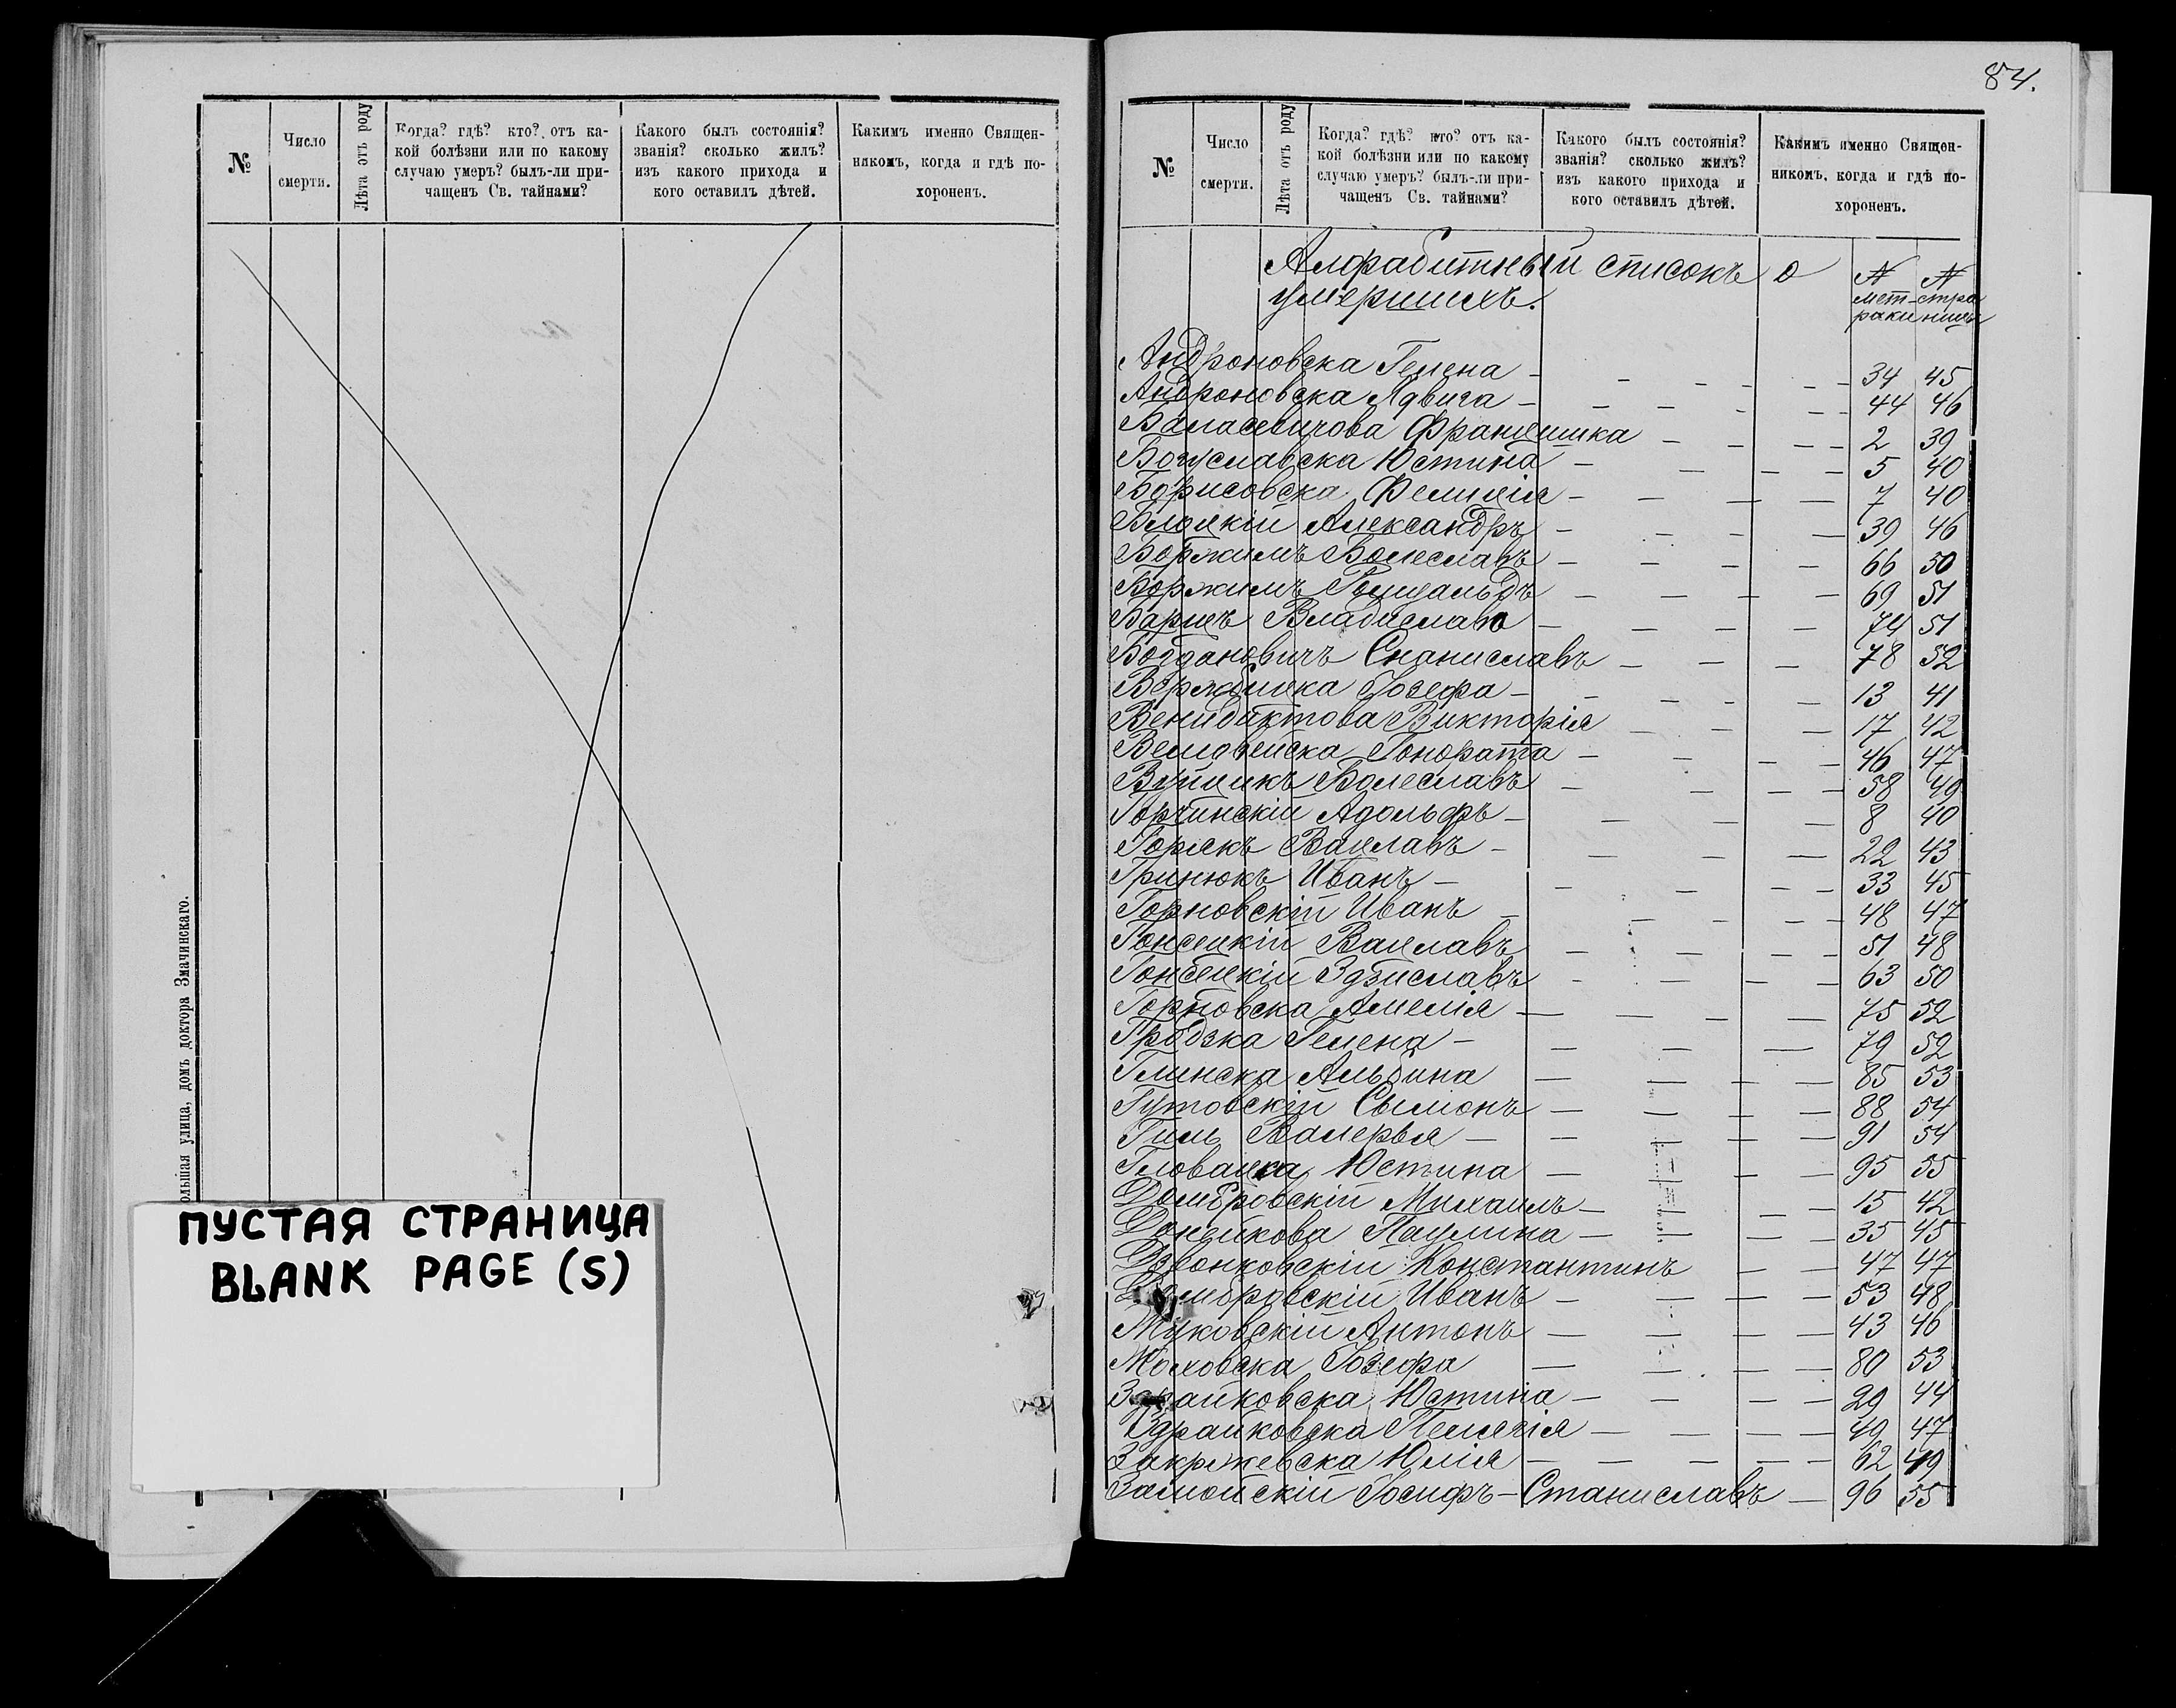 84.
№
Число
смерти.
Лѣта отъ роду
Когда? гдѣ? кто? отъ ка-
кой болѣзни или по какому
случаю умеръ? былъ-ли при-
чащенъ Св. тайнами?
Какого былъ состоянія?
званія? сколько жилъ?
изъ какого прихода и
кого оставилъ дѣтей.
Какимъ именно Священ-
никомъ, когда и гдѣ по-
хороненъ.
ольшая улица, домъ доктора Змачинскаго.
ПУСТАЯ СТРАНИЦА
BLANK PAGE (S)
№
Число
смерти.
Лѣта отъ роду
Когда? гдѣ? кто? отъ ка-
кой болѣзни или по какому
случаю умеръ? былъ-ли при-
чащенъ Св. тайнами?
Какого былъ состоянія?
званія? сколько жилъ?
изъ какого прихода и
кого оставилъ дѣтей.
Какимъ именно Священ-
никомъ, когда и гдѣ по-
хороненъ.
Алфабитный списокъ о
умершихъ.
N мет-рики
N стра-ницы
Андроновска Гелена - 34 45
Андроновска Ядвига - 44 46
Баласевичова Францишка - 2 39
Богуславска Юстина - 5 40
Борисовска Фелиція - 7 40
Блоцкій Александръ - 39 46
Боржимъ Болеславъ - 66 50
Боржимъ Ромуальдъ - 69 51
Барцъ Владиславъ - 74 51
Богдановичъ Станиславъ - 78 52
Вержбицка Іозефа - 13 41
Венидиктова Викторія - 17 42
Гонората - 46 47
Вуйцикъ Болеславъ - 58 49
Горчинскій Адольфъ - 8 40
Горякъ Вацлавъ - 22 43
Гринюкъ Иванъ - 33 45
Горновскій Иванъ - 48 47
Гонсецкій Вацлавъ - 51 48
Гонсецкій Здзиславъ - 63 50
Горновска Амелія - 75 52
Гродзка Гелена - 79 52
Глинска Альбина - 85 53
Гутовскій Сымонъ - 88 54
Гиль Валерья - 91 54
Гловацка Юстина - 95 55
Домбровскій Михаилъ - 15 42
Донейкова Паулина - 35 45
Дзвонковскій Константинъ - 47 47
Домбровскій Иванъ - 53 48
Жуковскій Антонъ - 43 46
Жоховска Іозефа - 80 53
Здрайковска Юстина - 29 44
Здрайковска Пелагія - 49 47
Закржевска Юлія - 62 49
Замойскій Іосифъ-Станиславъ - 96 55